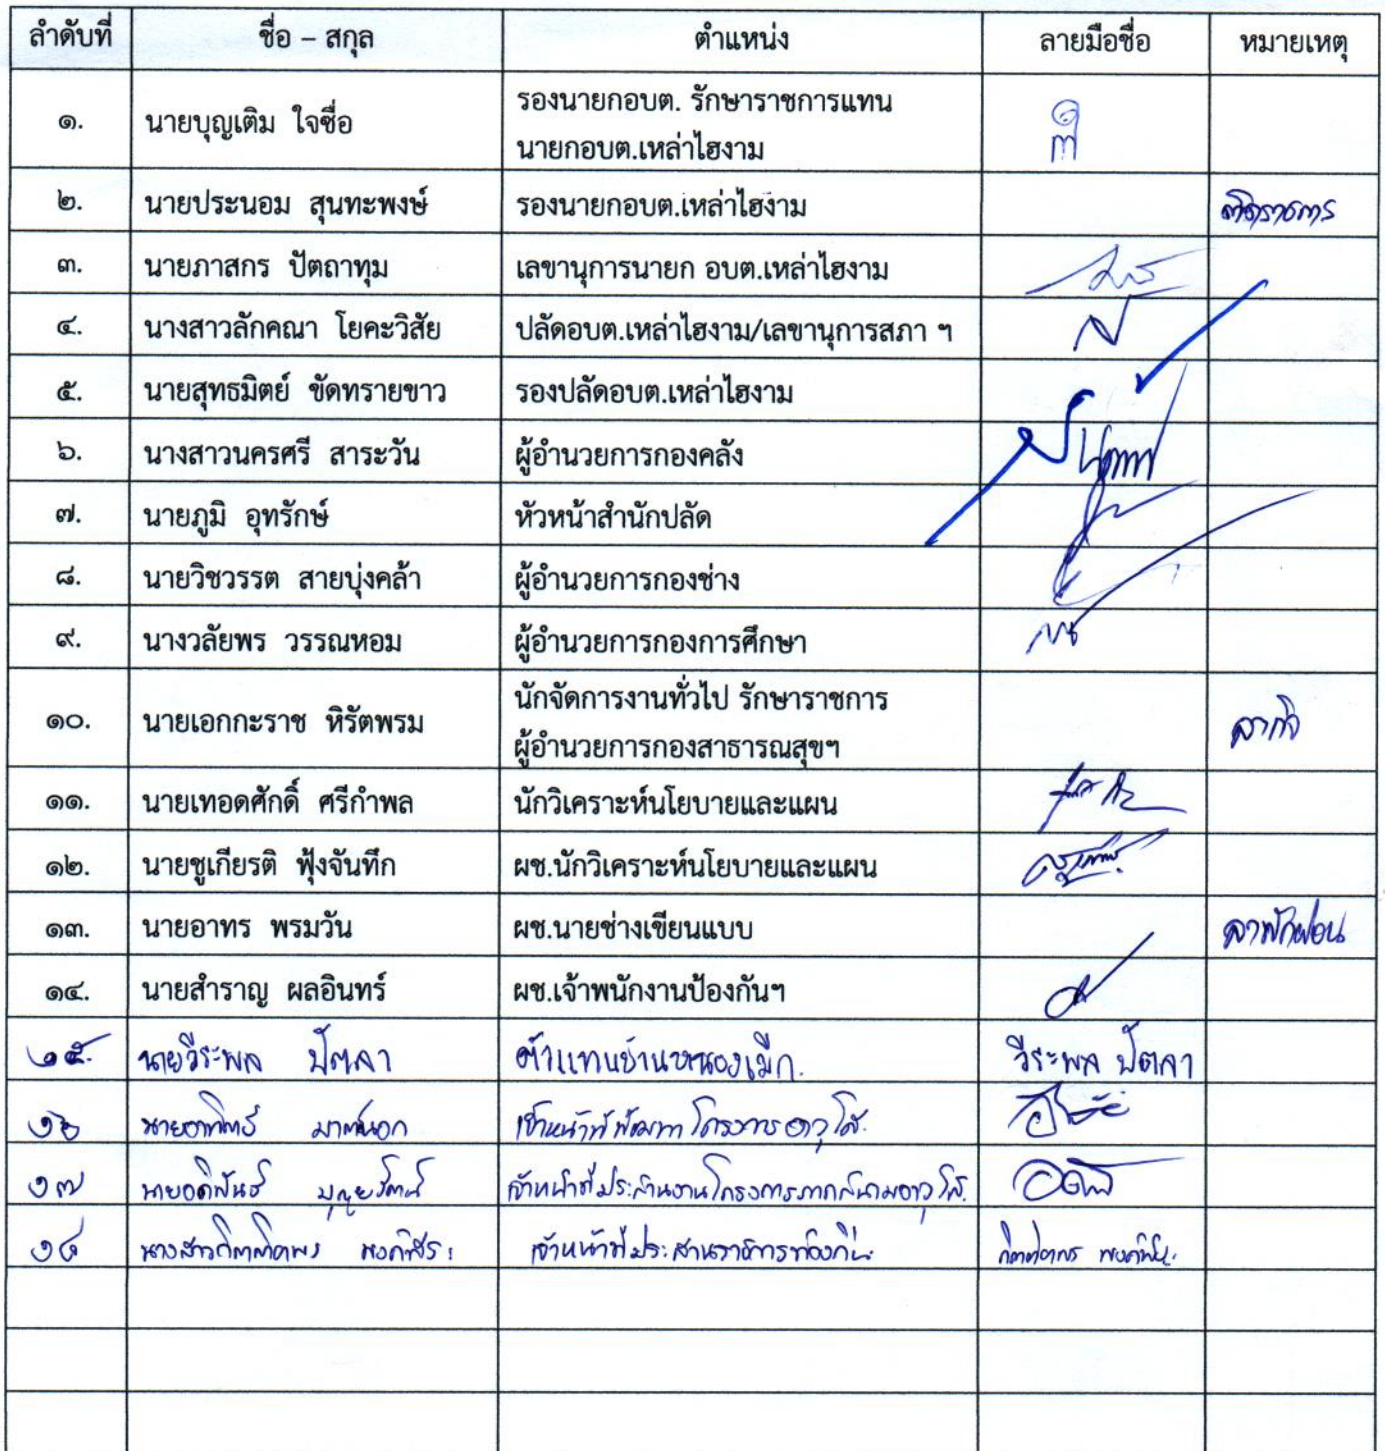 ลำดับที่ ชื่อ – สกุล ตำแหน่ง ลายมือชื่อ หมายเหตุ
๑. นายบุญเติม ใจซื่อ รองนายกอบต. รักษาราชการแทน
นายกอบต.เหล่าไฮงาม
๒. นายประนอม สุนทะพงษ์ รองนายกอบต.เหล่าไฮงาม ติดราชการ
๓. นายภาสกร ปัตถาทุม เลขานุการนายก อบต.เหล่าไฮงาม
๔. นางสาวลักคณา โยคะวิสัย ปลัดอบต.เหล่าไฮงาม/เลขานุการสภา ฯ
๕. นายสุทธมิตย์ ขัดทรายขาว รองปลัดอบต.เหล่าไฮงาม
๖. นางสาวนครศรี สาระวัน ผู้อำนวยการกองคลัง
๗. นายภูมิ อุทรักษ์ หัวหน้าสำนักปลัด
๘. นายวิชวรรต สายบุ่งคล้า ผู้อำนวยการกองช่าง
๙. นางวลัยพร วรรณหอม ผู้อำนวยการกองการศึกษา
๑๐. นายเอกกะราช หิรัตพรม นักจัดการงานทั่วไป รักษาราชการ ลากิจ
ผู้อำนวยการกองสาธารณสุขฯ
๑๑. นายเทอดศักดิ์ ศรีกำพล นักวิเคราะห์นโยบายและแผน
๑๒. นายชูเกียรติ ฟุ้งจันทึก ผช.นักวิเคราะห์นโยบายและแผน
๑๓. นายอาทร พรมวัน ผช.นายช่างเขียนแบบ ลาพักผ่อน
๑๔. นายสำราญ ผลอินทร์ ผช.เจ้าพนักงานป้องกันฯ
๑๕. นายวีระพล ปัตลา ตัวแทนบ้านหนองเม็ก. วีระพล ปัตลา
๑๖ นายอาทิตย์ เจ้าหน้าที่
๑๗ นายอดิพันธ์ บุญยรัตน์ เจ้าหน้าที่ประสานงานโครงการภาคสนาม
๑๘ นางสาว เจ้าหน้าที่ประสานราชการท้องถิ่น